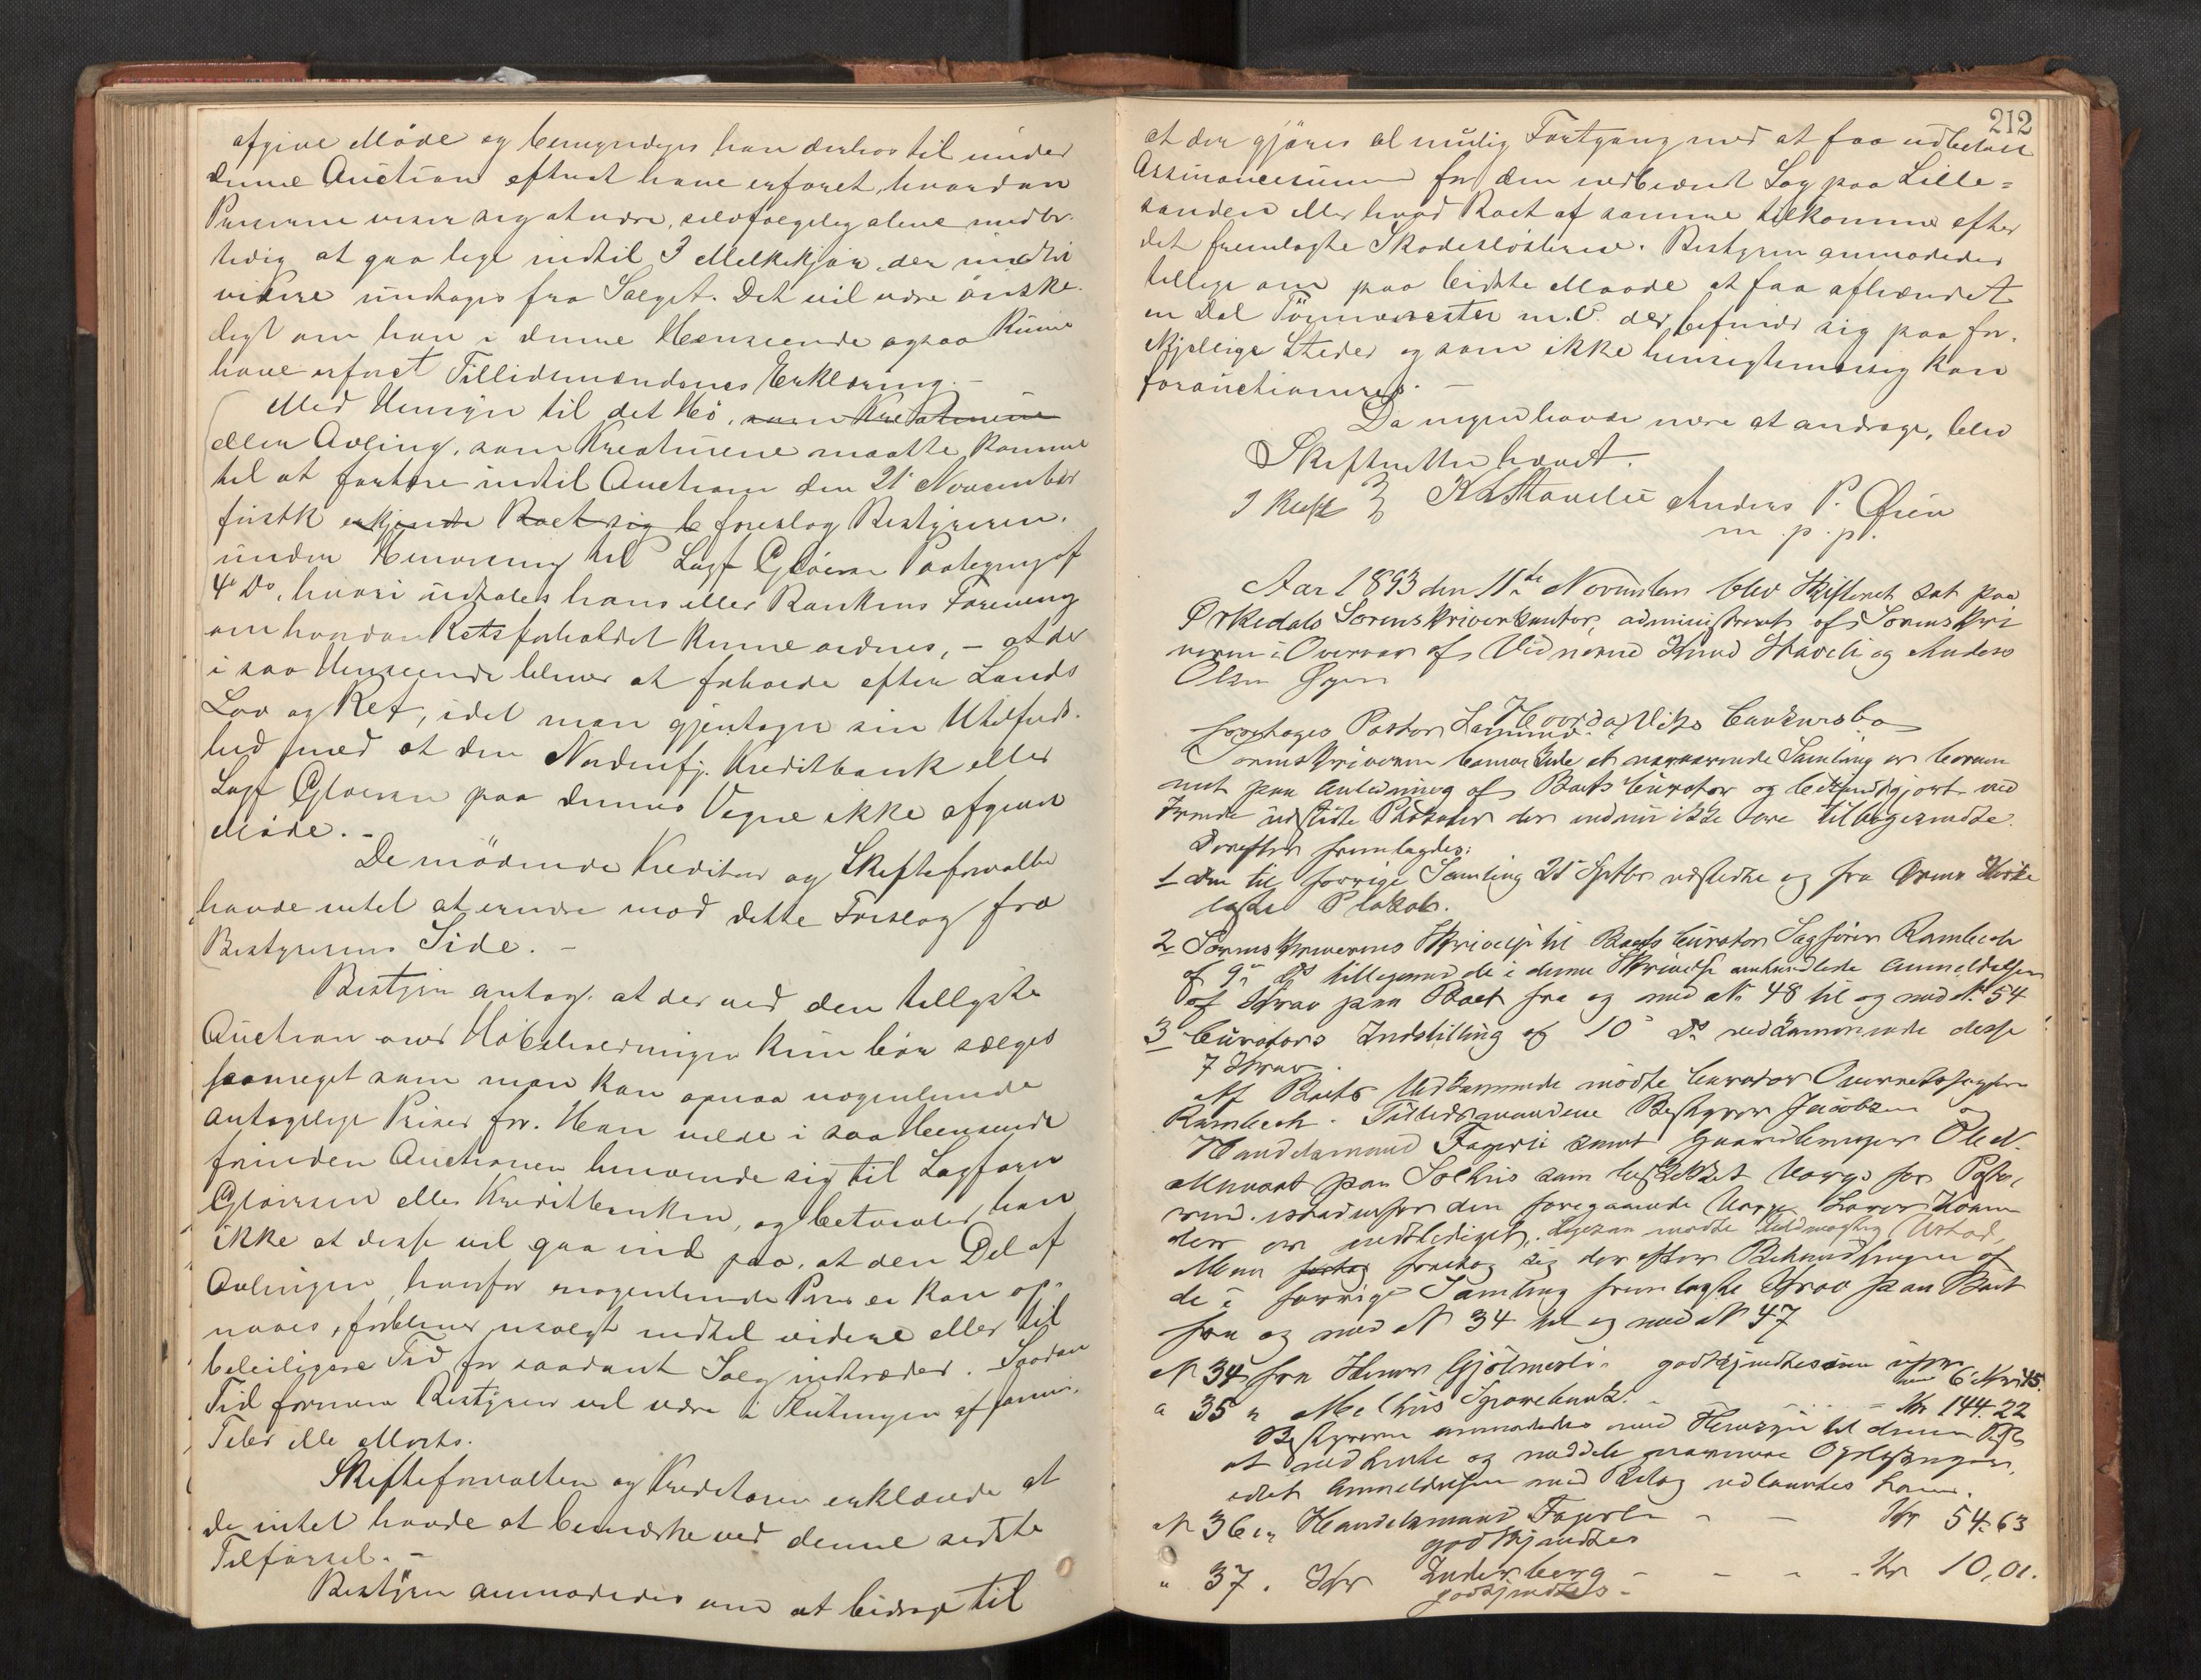 afgive Møde og bemyndiges han derhos til under
denne Auction efterat have erfaret, hvordan
Priserne viser sig at være, selvfølgelig alene midler-
tidig at gaa lige indtil 3 Melkekjør, der indtil
videre undtages fra Salget. Det vil være ønske-
ligt om han i denne Henseende ogsaa kunne
have erfaret Tillidsmændenes Erklæring. –
Med Hensyn til det Hø, som Kreaturene
eller Avling, som Kreaturene maatte komme
til at fortære indtil Auctionen den 21 November
førstk erkjende Boet sig b foreslog Bestyreren,
under Henvisning til Sagf Gløersen Paategning af
4de Ds, hvori udtales hans eller Bankens Formening
om hvordan Retsforholdet kunne ordnes, – at der
i saa Henseende bliver at forholde efter Lands
Lov og Ret, idet man gjentager sin Utilfreds-
hed med at den Nordenfj. Kreditbank eller
Sagf Gløersen paa dennes Vegne ikke afgiver
Møde. –
De mødende Kreditorer og Skifteforvalter
havde intet at erindre mod dette Forslag fra
Bestyrerens Side. –
Bestyrer antog, at der ved den tillyste
Auction over Høbeholdningen kun bør sælges
saameget som man kan opnaa nogenlunde
antagelige Priser for. Han vilde i saa Henseende
forinden Auctionen henvende sig til Sagfører
Gløersen eller Kreditbanken, og betvivler han
ikke at disse vil gaa ind paa, at den Del af
Avlingen, hvorfor nogenlunde Priser ei kan op-
naaes, forbliver usolgt indtil videre eller til
beleiligere Tid for saadant Salg indtræder. Saadan
Tid formener Bestyrer vil være i Slutningen af Januar,
Febr eller Marts.
Skifteforvalteren og Kreditorerne erklærede at
de intet havde at bemærke ved denne sidste
Tilførsel. –
Bestyrer anmodedes om at bidrage til
212
at der gjøres al mulig Fortgang med at faa udbetalt
Assurancesummen for den nedbrændte Sag paa Lille-
sanden eller hvad Boet af samme tilkommer efter
det fremlagte Skadesløsbrev. Bestyrer anmodedes
tillige om paa bedste Maade at faa afhændet
en Del Tømmerrester m.V. der befinder sig paa for-
skjellige Steder og som ikke hensigtsmæssig kan
forauctioneres. –
Da ingen havde mere at andrage, blev
Skifteretten hævet.
Anders P. Øien
m. p. p.
Aar 1893 den 11te November blev Skifteret sat paa
Orkedals Sorenskriverkontor, administreret af Sorenskri
veren i Overvær af Vidnerne Knud Staveli og Anders
Olsen Øyen
foretages Pastor Hviids Konkursbo
Sorenskriveren bemærkede at nærværende Samling er beram
met paa Anledning af Boets Curator og bekjendtgjort ved
trende udstedte Plakater der endnu ikke ere tilbagesendte.
Derefter fremlagdes:
1 den til forrige Samling 25 Septbr udstedte og fra Kirke
læste Plakat.
2 Sorenskriverens Skrivelse til Boets Curator Sagfører Rambech
af 9de Ds tilligemed de i denne Skrivelse omhandlede Anmeldelser
af Krav paa Boet fra og med No 48 til og med No 54
3 Curators Indstilling af 10de Ds vedkommende disse
7 Krav.
Af Boets Vedkommende mødte Curator Overretssagfører
Rambech. Tillidsmændene Bestyrer Jacobsen og
Handelsmand Fagerli samt Gaardbruger Ole N.
paa Solhus som beskikket Verge for
istedenfor den foregaaende Verge
der er entlediget. Ligesaa mødte Fuldmægtig Ustad,
Man fortog foretog sig derefter Behandlingen af
de i forrige Samling fremlagte Krav paa Boet
fra og med No 34 til og med No 47
No 34 fra Gjølmesli godkjendtes
" 35 " Melhus Sparebank – – – Kr 144.22
Bestyreren anmodedes med Hensyn til denne Post
at indhente og meddele nærmere Oplysninger,
idet Anmeldelsen med Bilag udlaantes ham.
No 36 " Handelsmand Fagerli – – Kr 54.63
godkjendtes
" 37. Hr Inderberg – – – Kr 10,01.
godkjendtes –